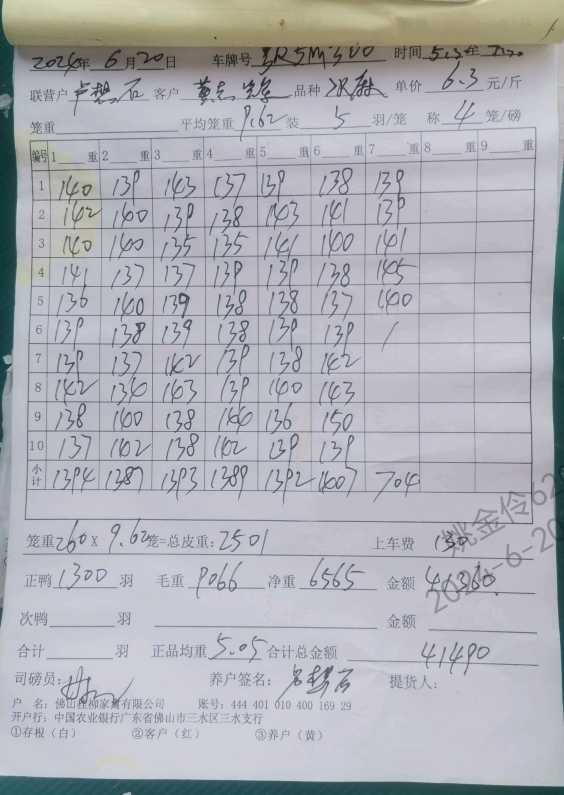 2024年 6月20日 车牌号 时间
联营户 卢想石 客户 品种 单价 6.3 元/斤
笼重 平均笼重 9.62 装 5 羽/笼 称 4 笼/磅
编号 1 重 2 重 3 重 4 重 5 重 6 重 7 重 8 重 9 重
1 140 139 143 137 139 138 139
2 142 140 139 138 143 141 139
3 140 140 135 135 141 140 141
4 141 137 137 139 139 138 145
5 136 140 139 138 138 137 140
6 139 138 139 138 139 139 /
7 139 137 142 139 138 142
8 142 134 143 139 140 143
9 138 140 138 144 136 150
10 137 142 138 142 139 139
小计 1394 1387 1393 1389 1392 1407 704
笼重 260 x 9.62 笼=总皮重: 2501 上车费 130
正鸭 1300 羽 毛重 9066 净重 6565 金额 41360
次鸭 羽 金额
合计 羽 正品均重 5.05 合计总金额 41490
司磅员: 养户签名: 卢想石 提货人:
户 名: 佛山 柳家禽有限公司 账号: 444 401 010 400 169 29
开户行: 中国农业银行广东省佛山市三水区三水支行
①存根(白) ②客户(红) ③养户(黄)
姚金伶62
2024-6-20